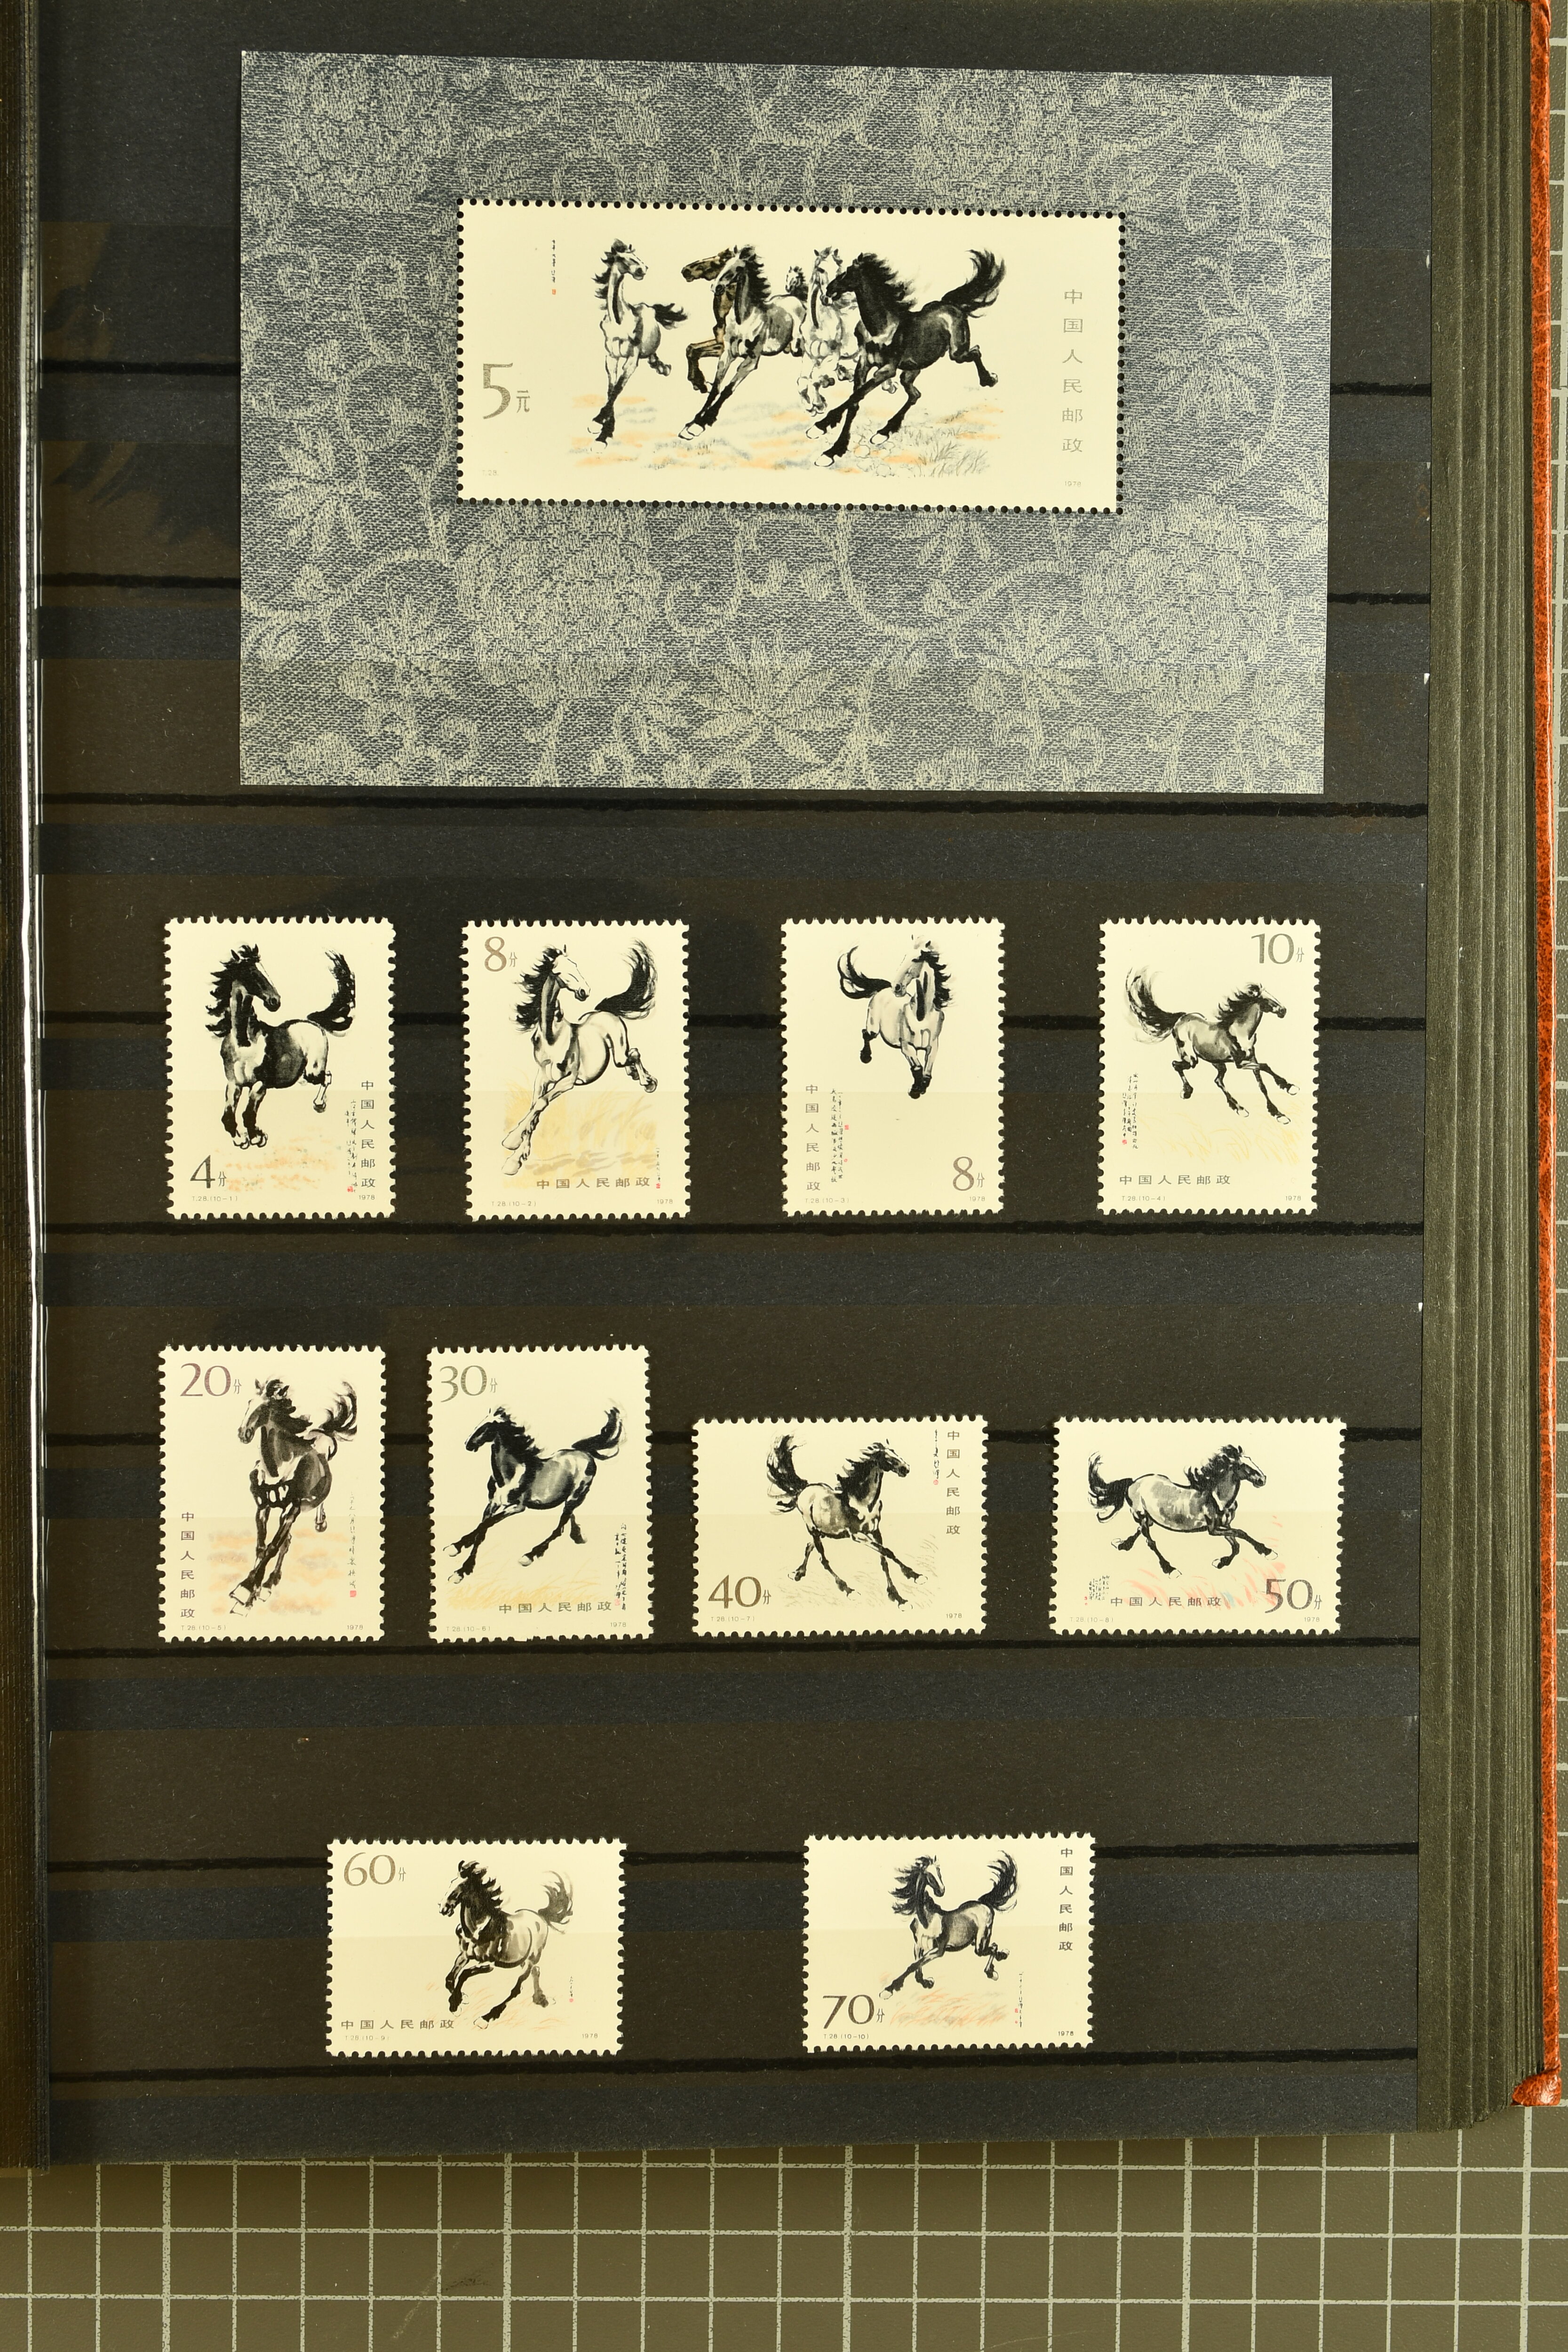 5元
中国人民邮政
T.28
1978
4分
中国人民邮政
T.28.(10-1)
1978
8分
中国人民邮政
T.28.(10-2)
1978
中国人民邮政
8分
T.28.(10-3)
1978
10分
中国人民邮政
T.28.(10-4)
1978
20分
中国人民邮政
T.28.(10-5)
1978
30分
中国人民邮政
T.28.(10-6)
1978
中国人民邮政
40分
T.28.(10-7)
1978
中国人民邮政
50分
T.28.(10-8)
1978
60分
中国人民邮政
T.28.(10-9)
1978
中国人民邮政
70分
T.28.(10-10)
1978